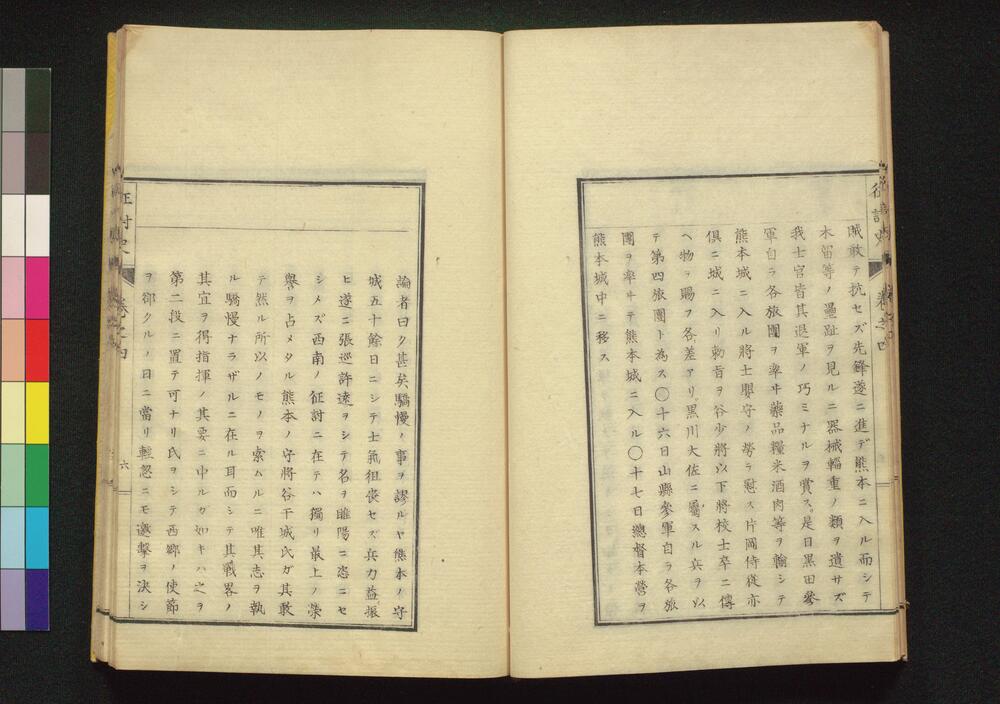 賊敢テ抗セズ先鋒遂ニ進デ熊本ニ入ル而シテ
木留等ノ壘趾ヲ見ルニ器械輜重ノ類ヲ遺サズ
我士官皆其退軍ノ巧ミナルヲ賞ス。是日黒田參
軍自ラ各旅團ヲ率ヰ藥品糧米酒肉等ヲ輸シテ
熊本城ニ入ル將士嬰守ノ勞ヲ慰ス片岡侍從亦
倶ニ城ニ入リ勅旨ヲ谷少將以下將校士卒ニ傳
ヘ物ヲ賜フ各差アリ。黒川大佐ニ屬スル兵ヲ以
テ第四旅團ト為ス〇十六日山縣參軍自ラ各旅
團ヲ率ヰテ熊本城ニ入ル〇十七日總督本營ヲ
熊本城中ニ移ス
論者曰ク甚矣驕慢ノ事ヲ謬ルヤ熊本ノ守
城五十餘日ニシテ士氣徂喪セズ兵力益振
ヒ遂ニ張巡許遠ヲシテ名ヲ睢陽ニ恣ニセ
シメズ西南ノ征討ニ在テハ獨リ最上ノ榮
譽ヲ占メタル熊本ノ守將谷干城氏ガ其敢
テ然ル所以ノモノヲ索ムルニ唯其志ヲ執
ル驕慢ナラザルニ在ル耳而シテ其戰畧ノ
其宜ヲ得指揮ノ其要ニ中ルガ如キハ之ヲ
第二段ニ置テ可ナリ氏ヲシテ西郷ノ使節
ヲ郤クルノ日ニ當リ輕忽ニモ邀擊ヲ決シ
征討史
卷之四
六